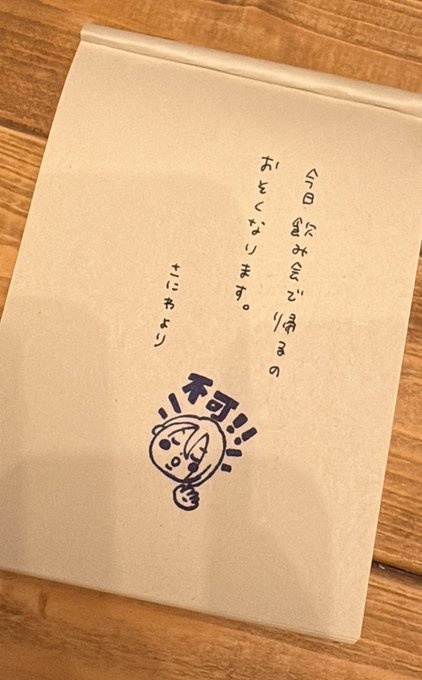 今日飲み会で帰るの
おそくなります。
さにわより
不可!!